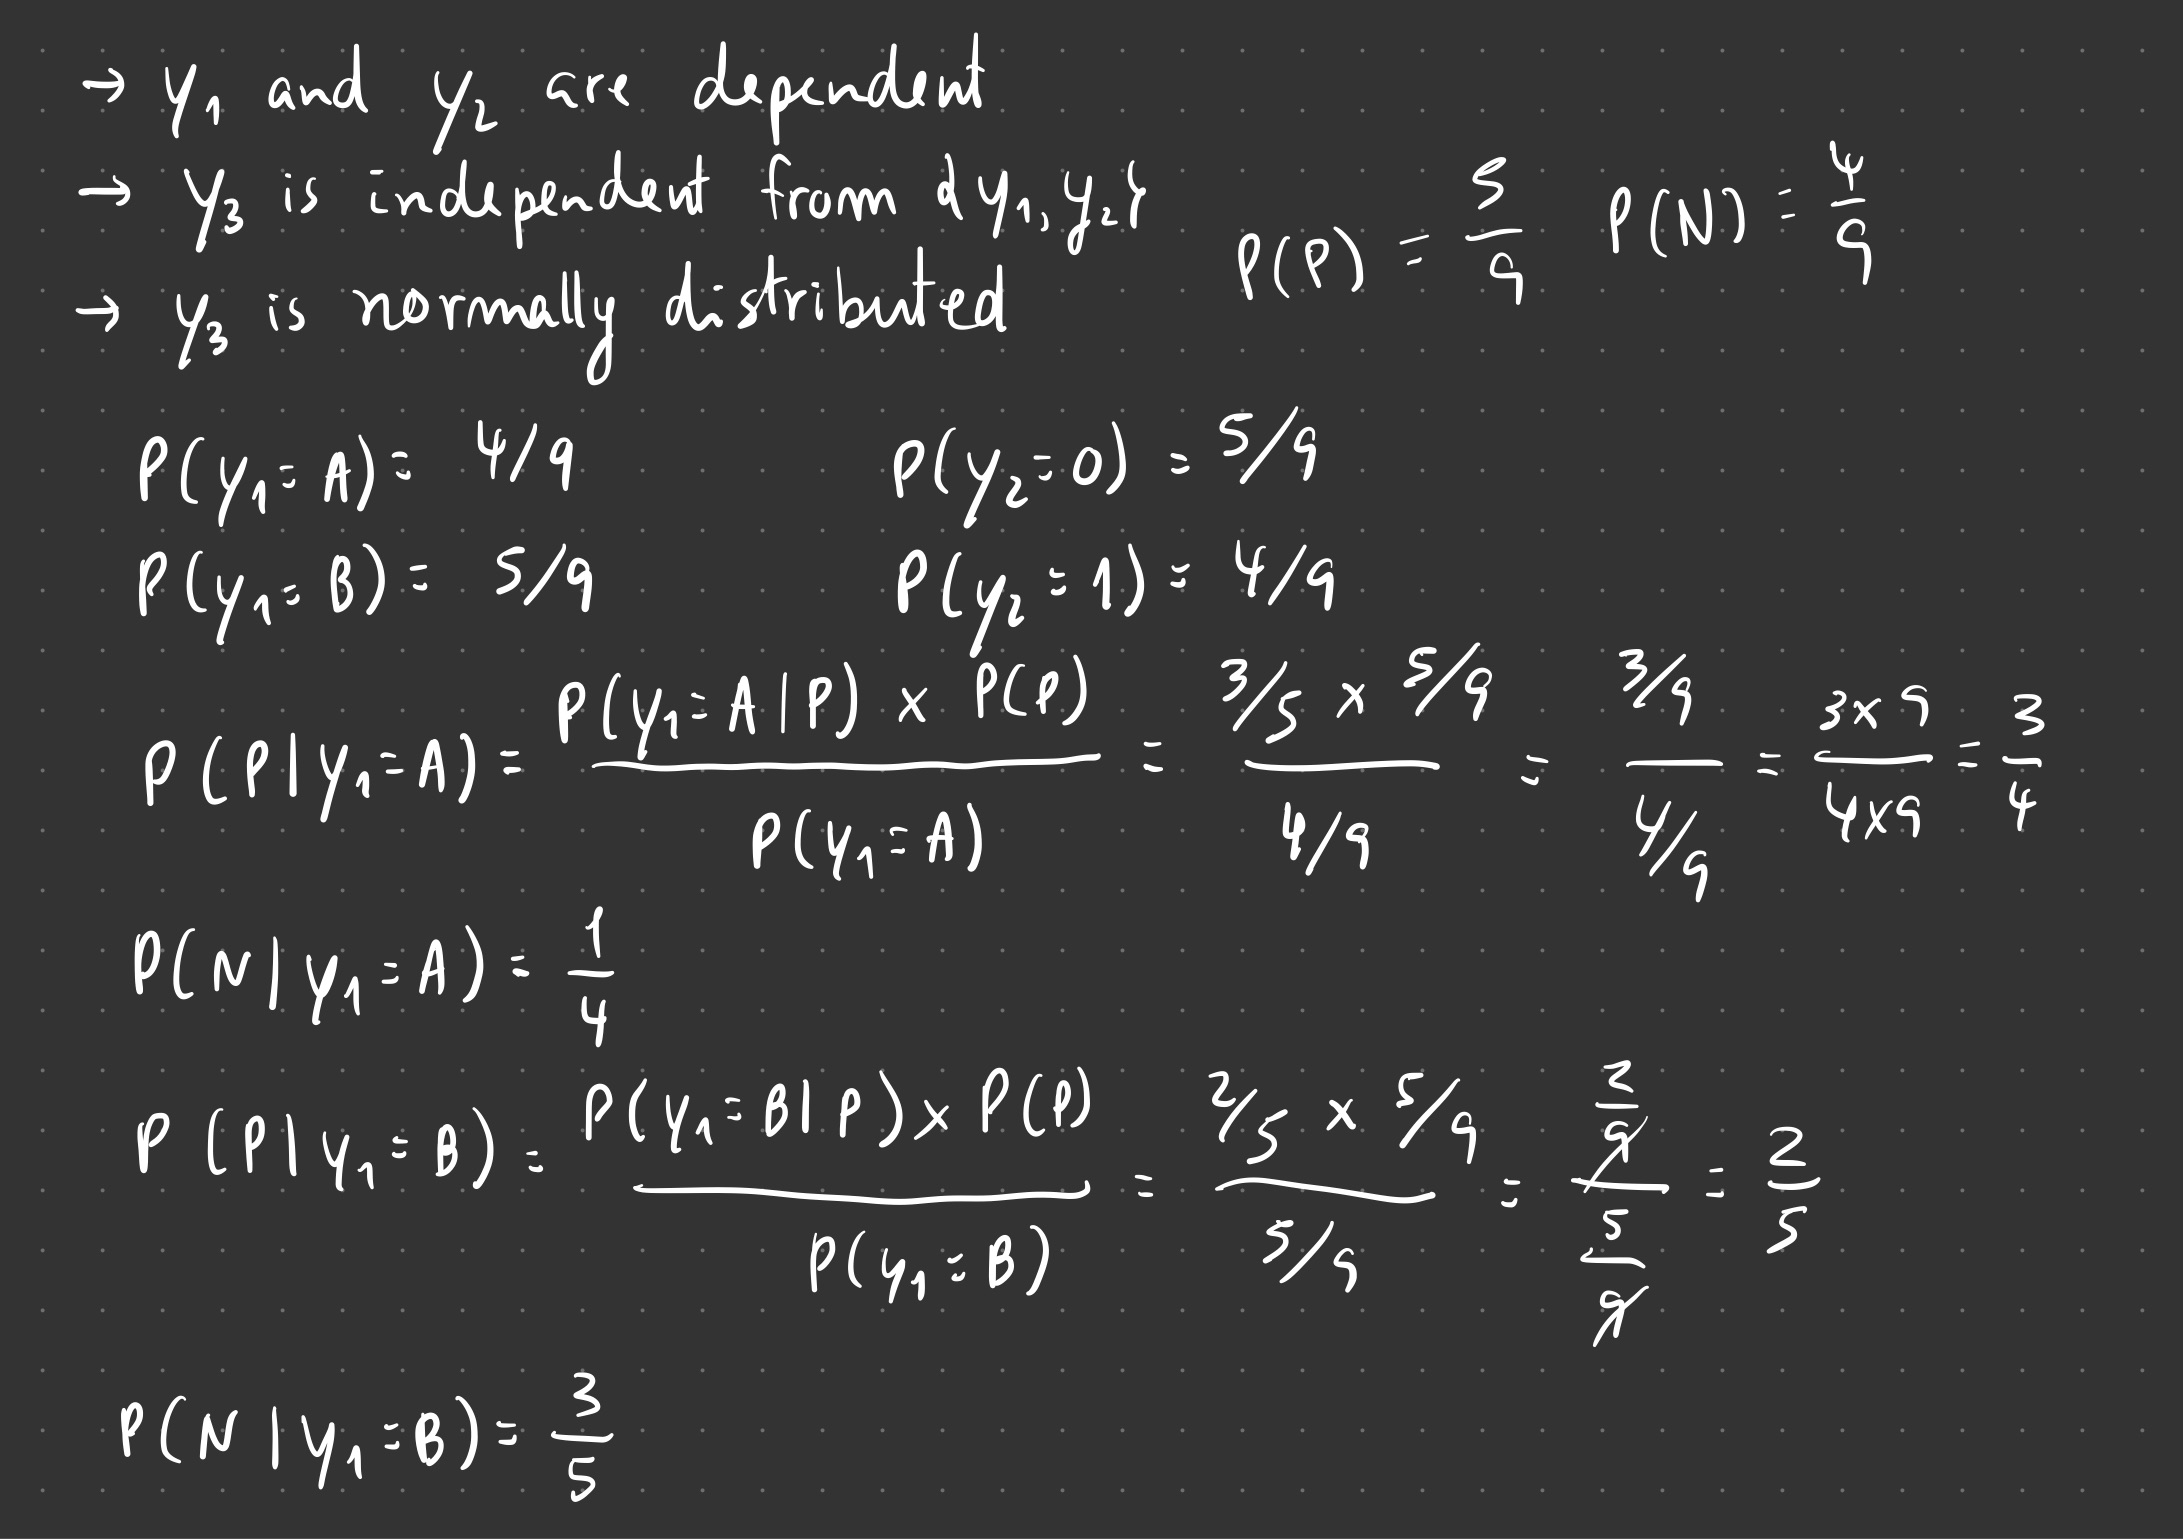 → y₁ and y₂ are dependent
→ y₃ is independent from {y₁, y₂}
P(P) = 5/9 P(N) = 4/9
→ y₃ is normally distributed
P(y₁ = A) = 4/9 P(y₂ = 0) = 5/9
P(y₁ = B) = 5/9 P(y₂ = 1) = 4/9
P(P | y₁ = A) = (P(y₁ = A | P) × P(P)) / P(y₁ = A) = (3/5 × 5/9) / (4/9) = (3/9) / (4/9) = (3×9) / (4×9) = 3/4
P(N | y₁ = A) = 1/4
P(P | y₁ = B) = (P(y₁ = B | P) × P(P)) / P(y₁ = B) = (2/5 × 5/9) / (5/9) = (2/9) / (5/9) = 2/5
P(N | y₁ = B) = 3/5